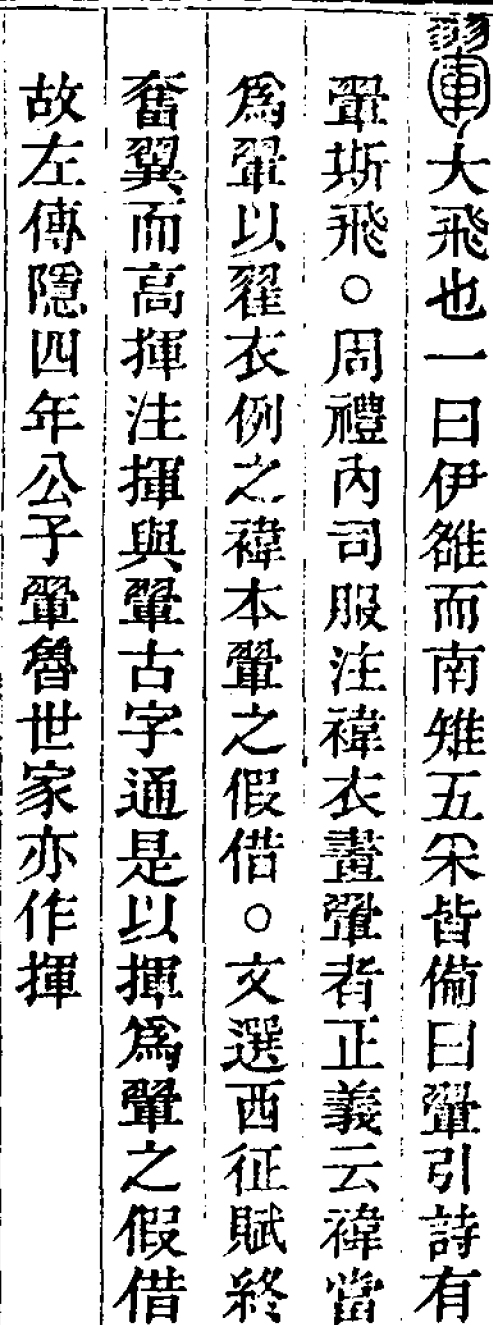 翬大飛也一曰伊雒而南雉五采皆備曰翬引詩有
翬斯飛○周禮內司服注褘衣畫翬者正義云褘當
爲翬以翟衣例之褘本翬之假借○文選西征賦終
奮翼而高揮注揮與翬古字通是以揮爲翬之假借
故左傳隱四年公子翬魯世家亦作揮